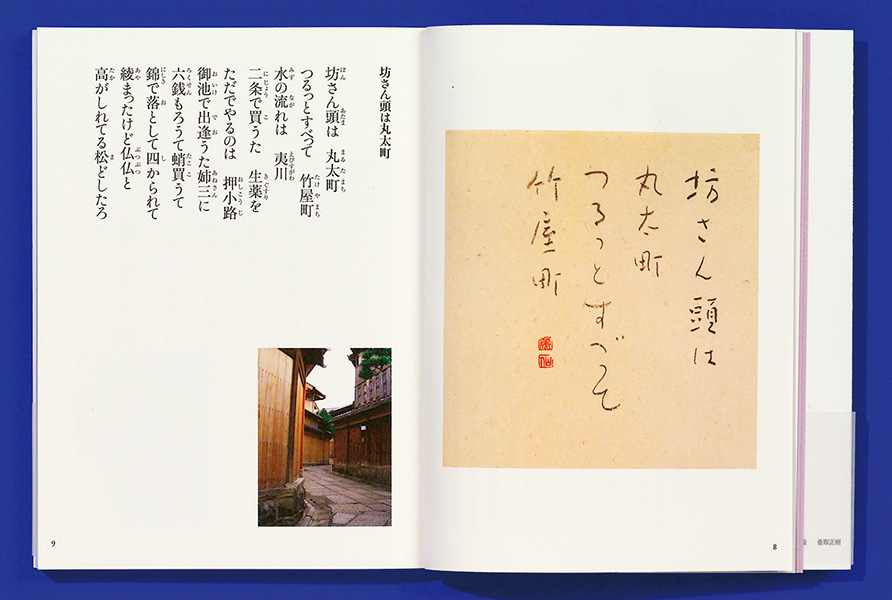 坊さん頭は
丸太町
つるっとすべって
竹屋町
8
香取正樹
坊さん頭は丸太町
坊さん頭は　丸太町
つるっとすべって　竹屋町
水の流れは　夷川
二条で買うた　生薬を
ただでやるのは　押小路
御池で出逢うた姉三に
六銭もろうて蛸買うて
錦で落として四かられて
綾まったけど仏仏と
高がしれてる松どしたろ
9